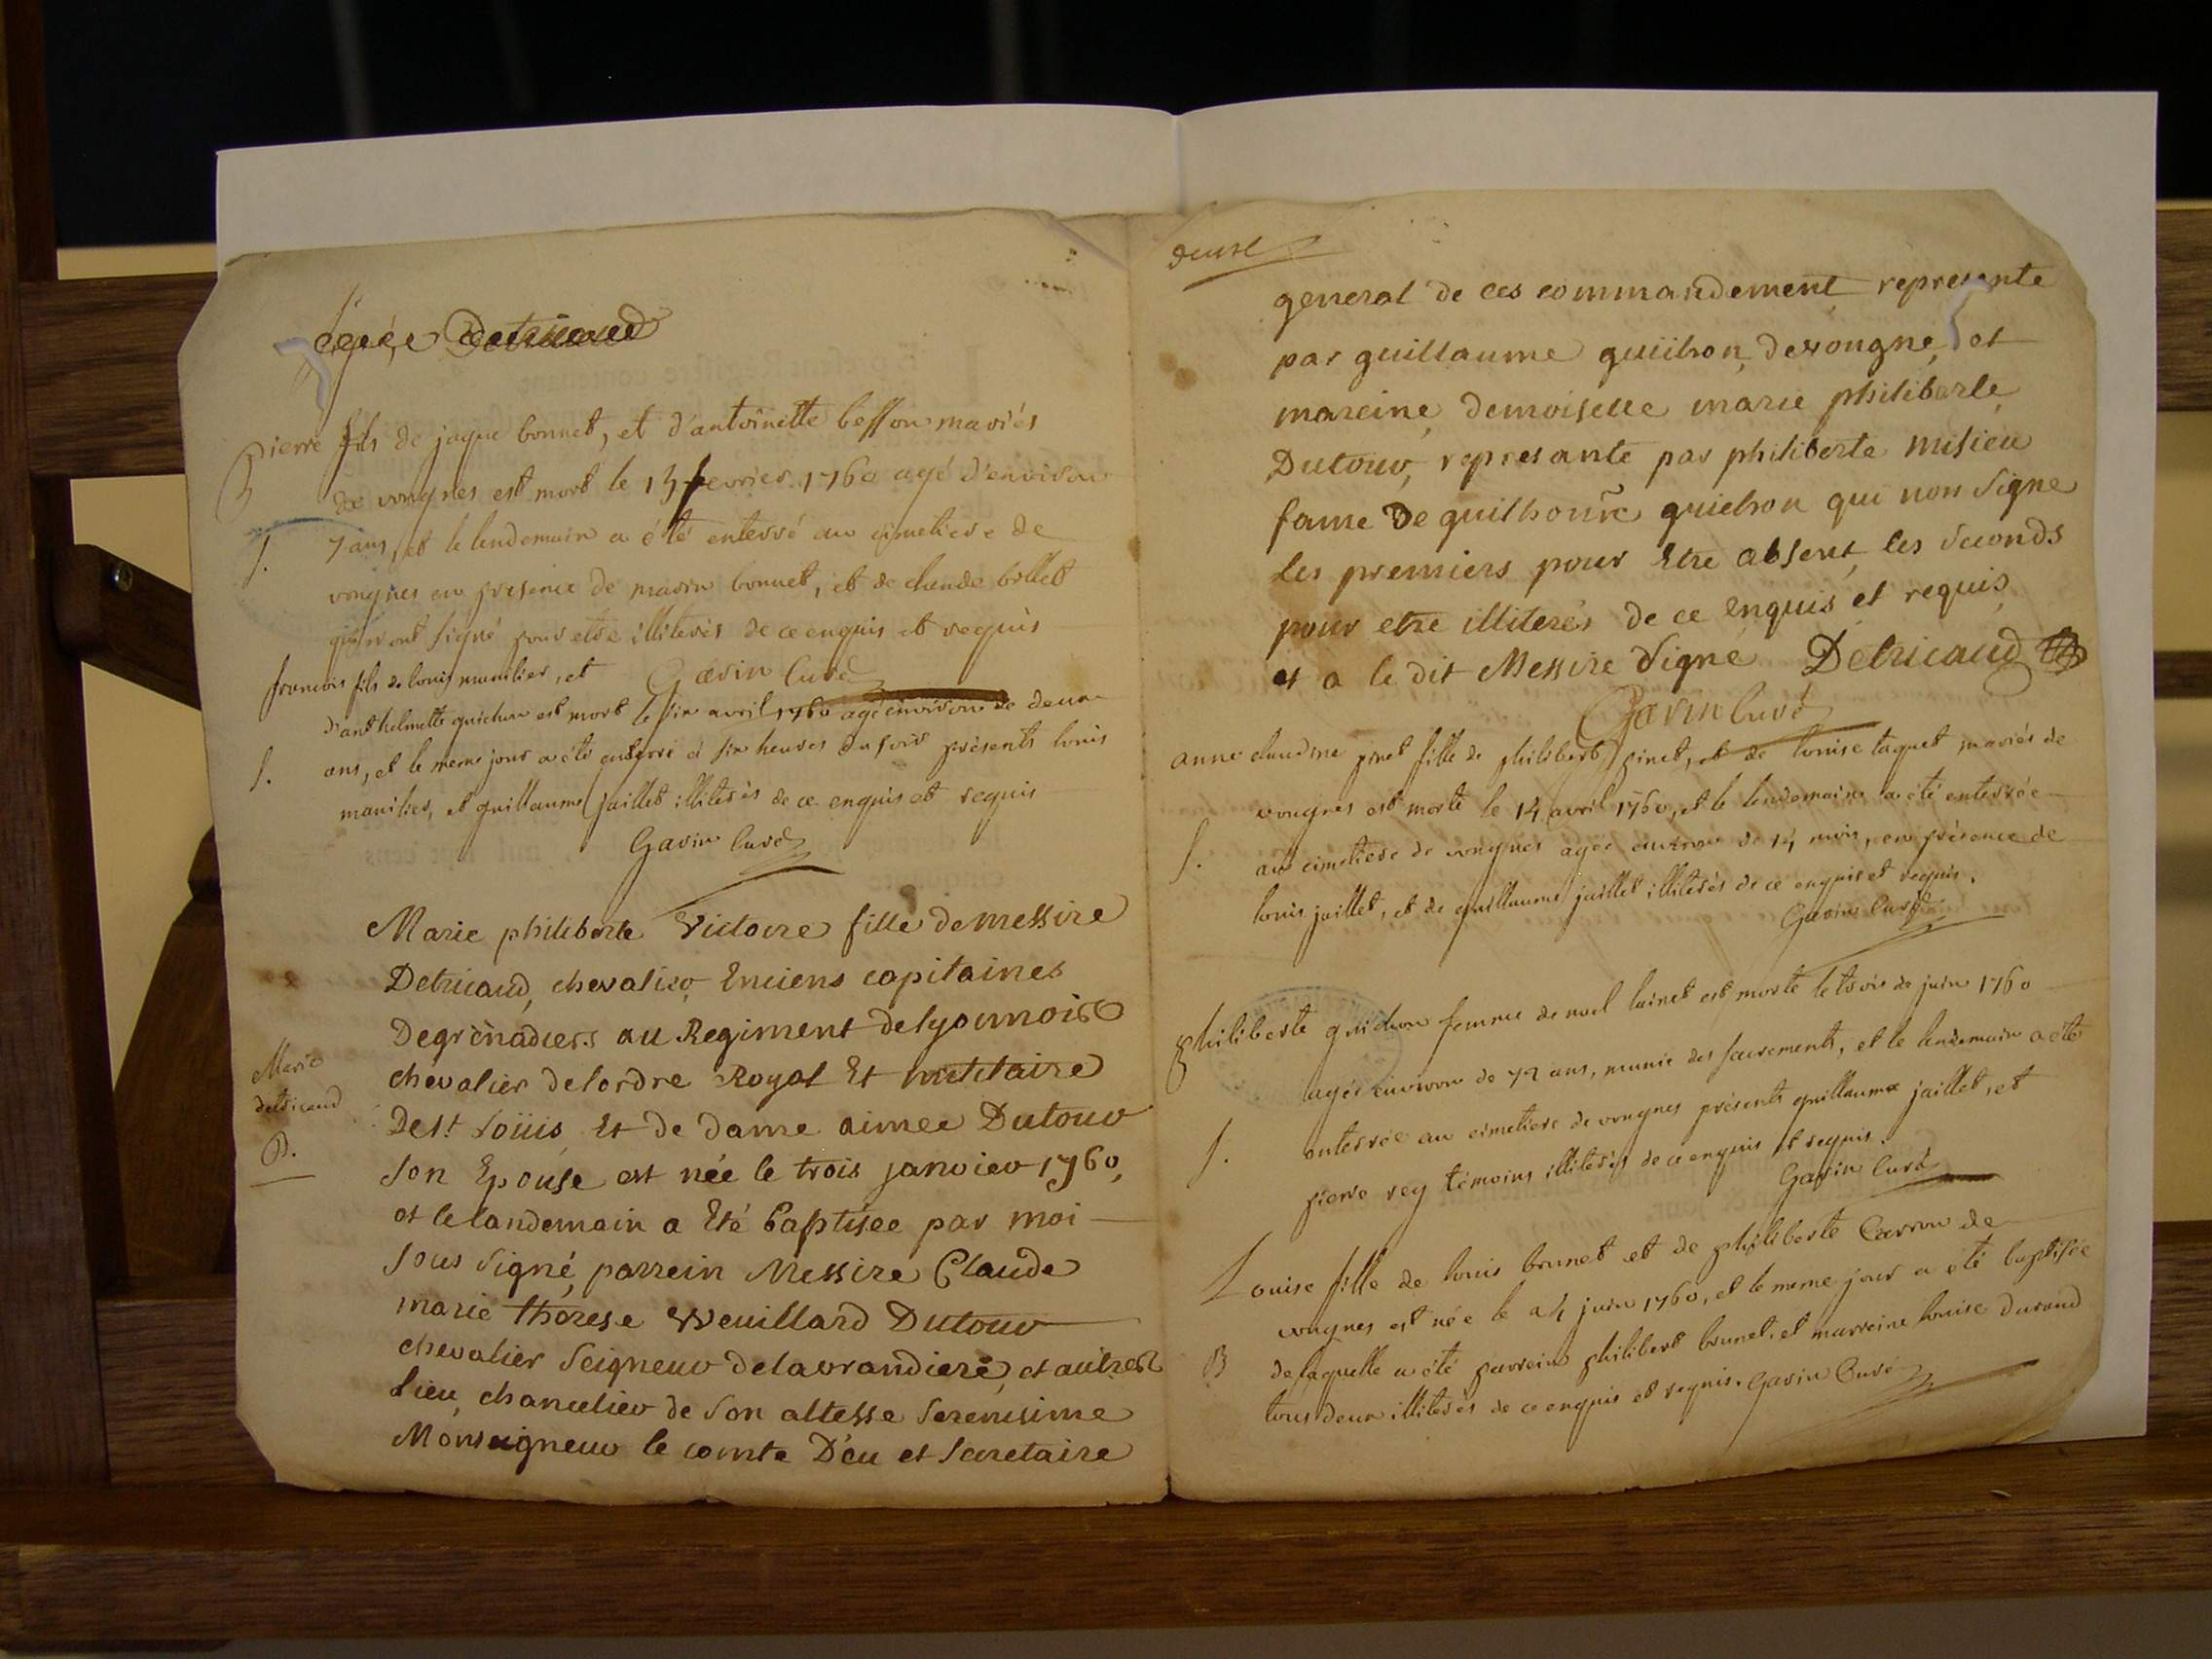 Detricaud
Pierre fils de jaque bonnet, et d'antoinette besson mariés
de vongnes est mort le 13 fevrier 1760 agé d'environ
S. 7 ans, et le lendemain a été enterré au cimetiere de
vongnes en presence de marin bonnet, et de claude bollet
qui n'ont signé pour etre illiterés de ce enquis et requis
Gavin Curé
francois fils de louis manilier, et
d'anthelmette guichon est mort le six avril 1760 agé environ de deux
S. ans, et le meme jour a été enterré à six heures du soir présents louis
manilier, et guillaume jaillet illiterés de ce enquis et requis
Gavin Curé
Marie philiberte Victoire fille de messire
Detricaud, chevalier, Enciens capitaines
Degrènadiers au Regiment de lyonnois
Marie
detricaud
B.
chevalier delordre Royal Et militaire
De st Loüis, Et de dame aimee Dutour
Son Epouse est née le trois janvier 1760,
et le landemain a Eté baptisee par moi
Sous Signé, parrein Messire Claude
marie thérese Weuillard Dutour
chevalier Seigneur delavrandiere, et autres
Lieu, chancelier de Son altesse Serenisime
Monseigneur le comte D'éu et Secretaire
general de ces commandement represente
par guillaume guiihon, devongne, et
mareine, demoiselle marie philiberte
Dutour, represante par philiberte misieu
fame De guichon qui non Signe
les premiers pour Etre absent, les seconds
pour etre illiterés de ce Enquis et requis
et a le dit Messire Signe Detricaud
Gavin Curé
anne claudine pinet fille de philibert pinet, et de louise taquet mariés de
vongnes est morte le 14 avril 1760, et le lendemain a été enterrée
S. au cimetiere de vongnes agée environ de 14 mois, en présence de
louis jaillet, et de guillaume jaillet illiterés de ce enquis et requis.
Gavin Curé
philiberte guichon femme de noel luinet est morte le trois de juin 1760
agée environ de 72 ans, munie des sacrements, et le lendemain a été
S. enterrée au cimetiere de vongnes présents guillaume jaillet, et
pierre rey témoins illiterés de ce enquis et requis.
Gavin Curé
Louise fille de louis brunet et de philiberte Carron de
vongnes est née le 24 juin 1760, et le meme jour a été baptisée
B de laquelle a été parrein philibert brunet, et marreine louise durand
tous deux illiterés de ce enquis et requis. Gavin Curé